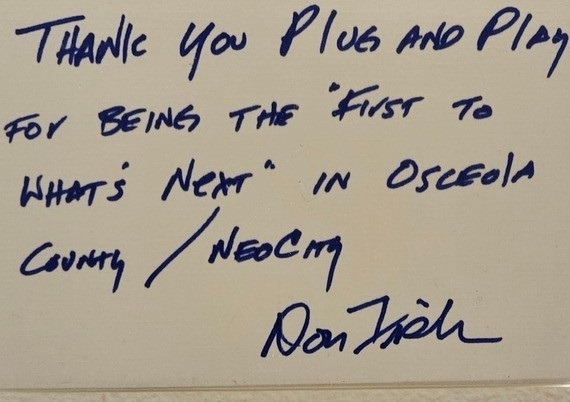 THANK YOU PLUG AND PLAY
FOR BEING THE "FIRST TO
WHAT'S NEXT" IN OSCEOLA
COUNTY / NEOCITY
Don Fisher